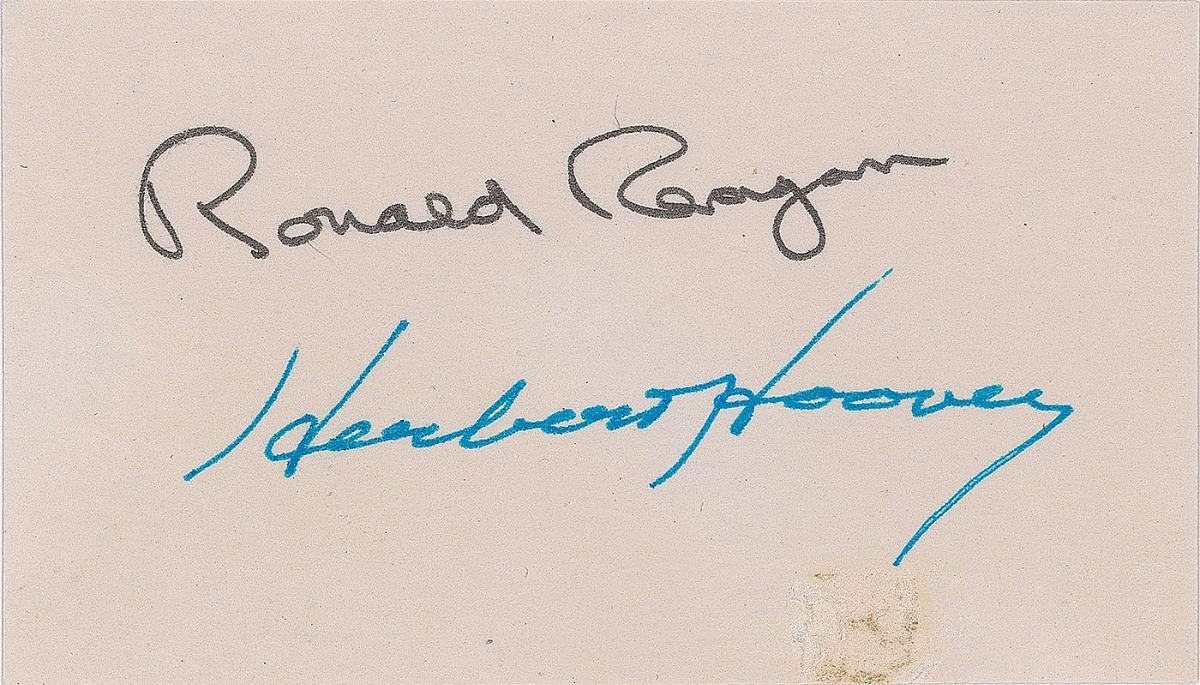 Ronald Reagan
Herbert Hoover